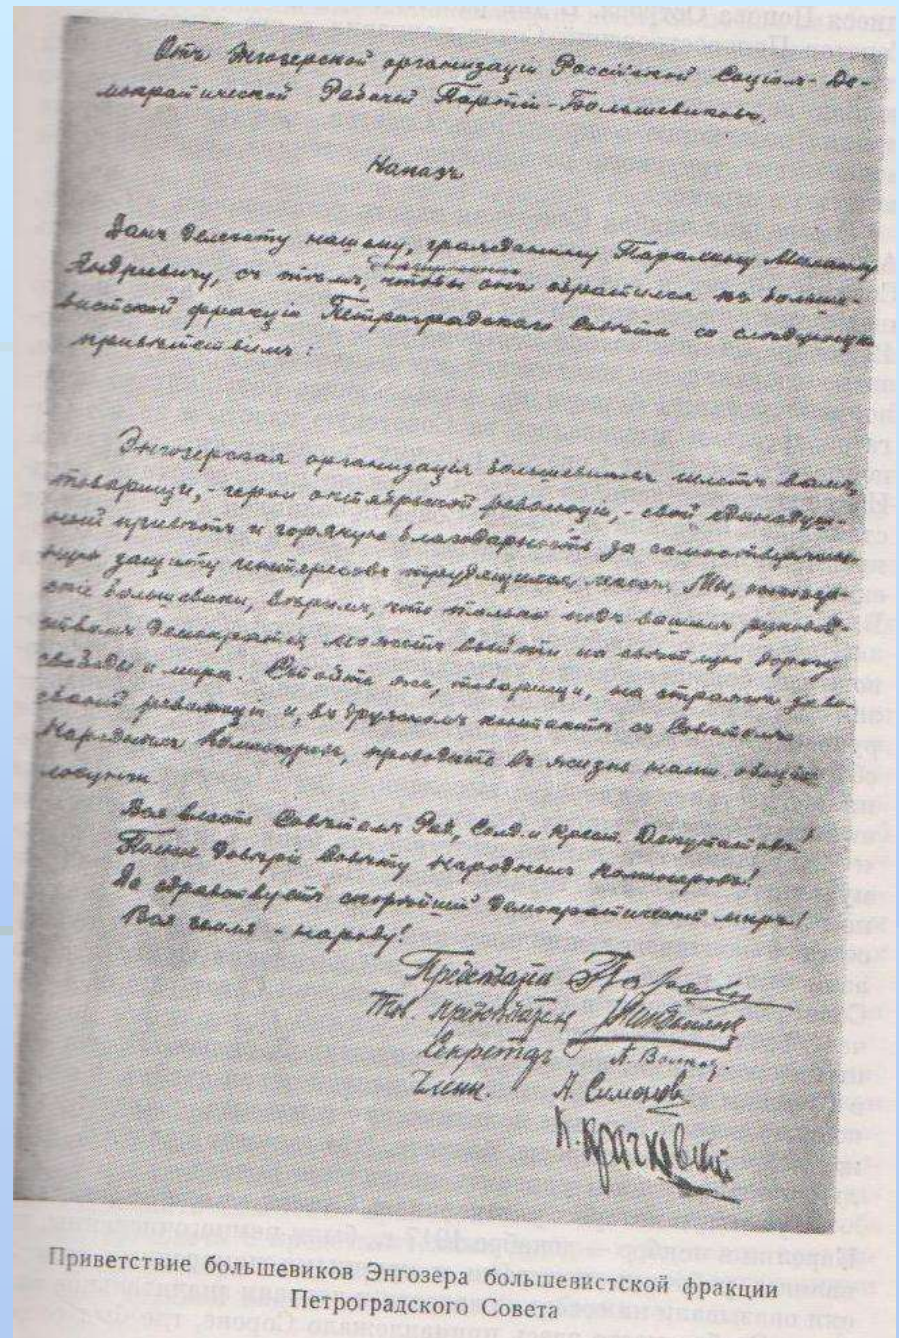 Отъ Энгозерской организаціи Россійской Соціаль-Де-
мократической Рабочей Партіи-Большевиковъ.
Наказъ
Данъ делегату нашему, гражданину
Андреевичу, съ тѣмъ, чтобы онъ обратился къ больше-
вистской фракціи Петроградскаго Совѣта со слѣдующимъ
привѣтствіемъ:
Энгозерская организація большевиковъ шлетъ вамъ,
товарищи, - герои октябрьской революціи, - свой единодуш-
ный привѣтъ и горячую благодарность за самоотверженную
защиту интересовъ трудящихся массъ. Мы, энгозер-
скіе большевики, вѣримъ, что только подъ вашимъ руковод-
ствомъ демократія можетъ выйти на свѣтлую дорогу
свободы и мира. Стойте же, товарищи, на стражѣ заво-
еваній революціи и, въ дружномъ контактѣ съ Совѣтомъ
Народныхъ Комиссаровъ, проводите въ жизнь наши общіе
лозунги
Вся власть Совѣтамъ Раб, Солд. и Крест. Депутатовъ!
Полное довѣріе Совѣту Народныхъ Комиссаровъ!
Да здравствуетъ скорѣйшій демократическій миръ!
Вся земля - народу!
Тов. предсѣдателя
Секретарь А. Волков
Члены. А. Симоновъ
К. Крачковскій
Приветствие большевиков Энгозера большевистской фракции
Петроградского Совета